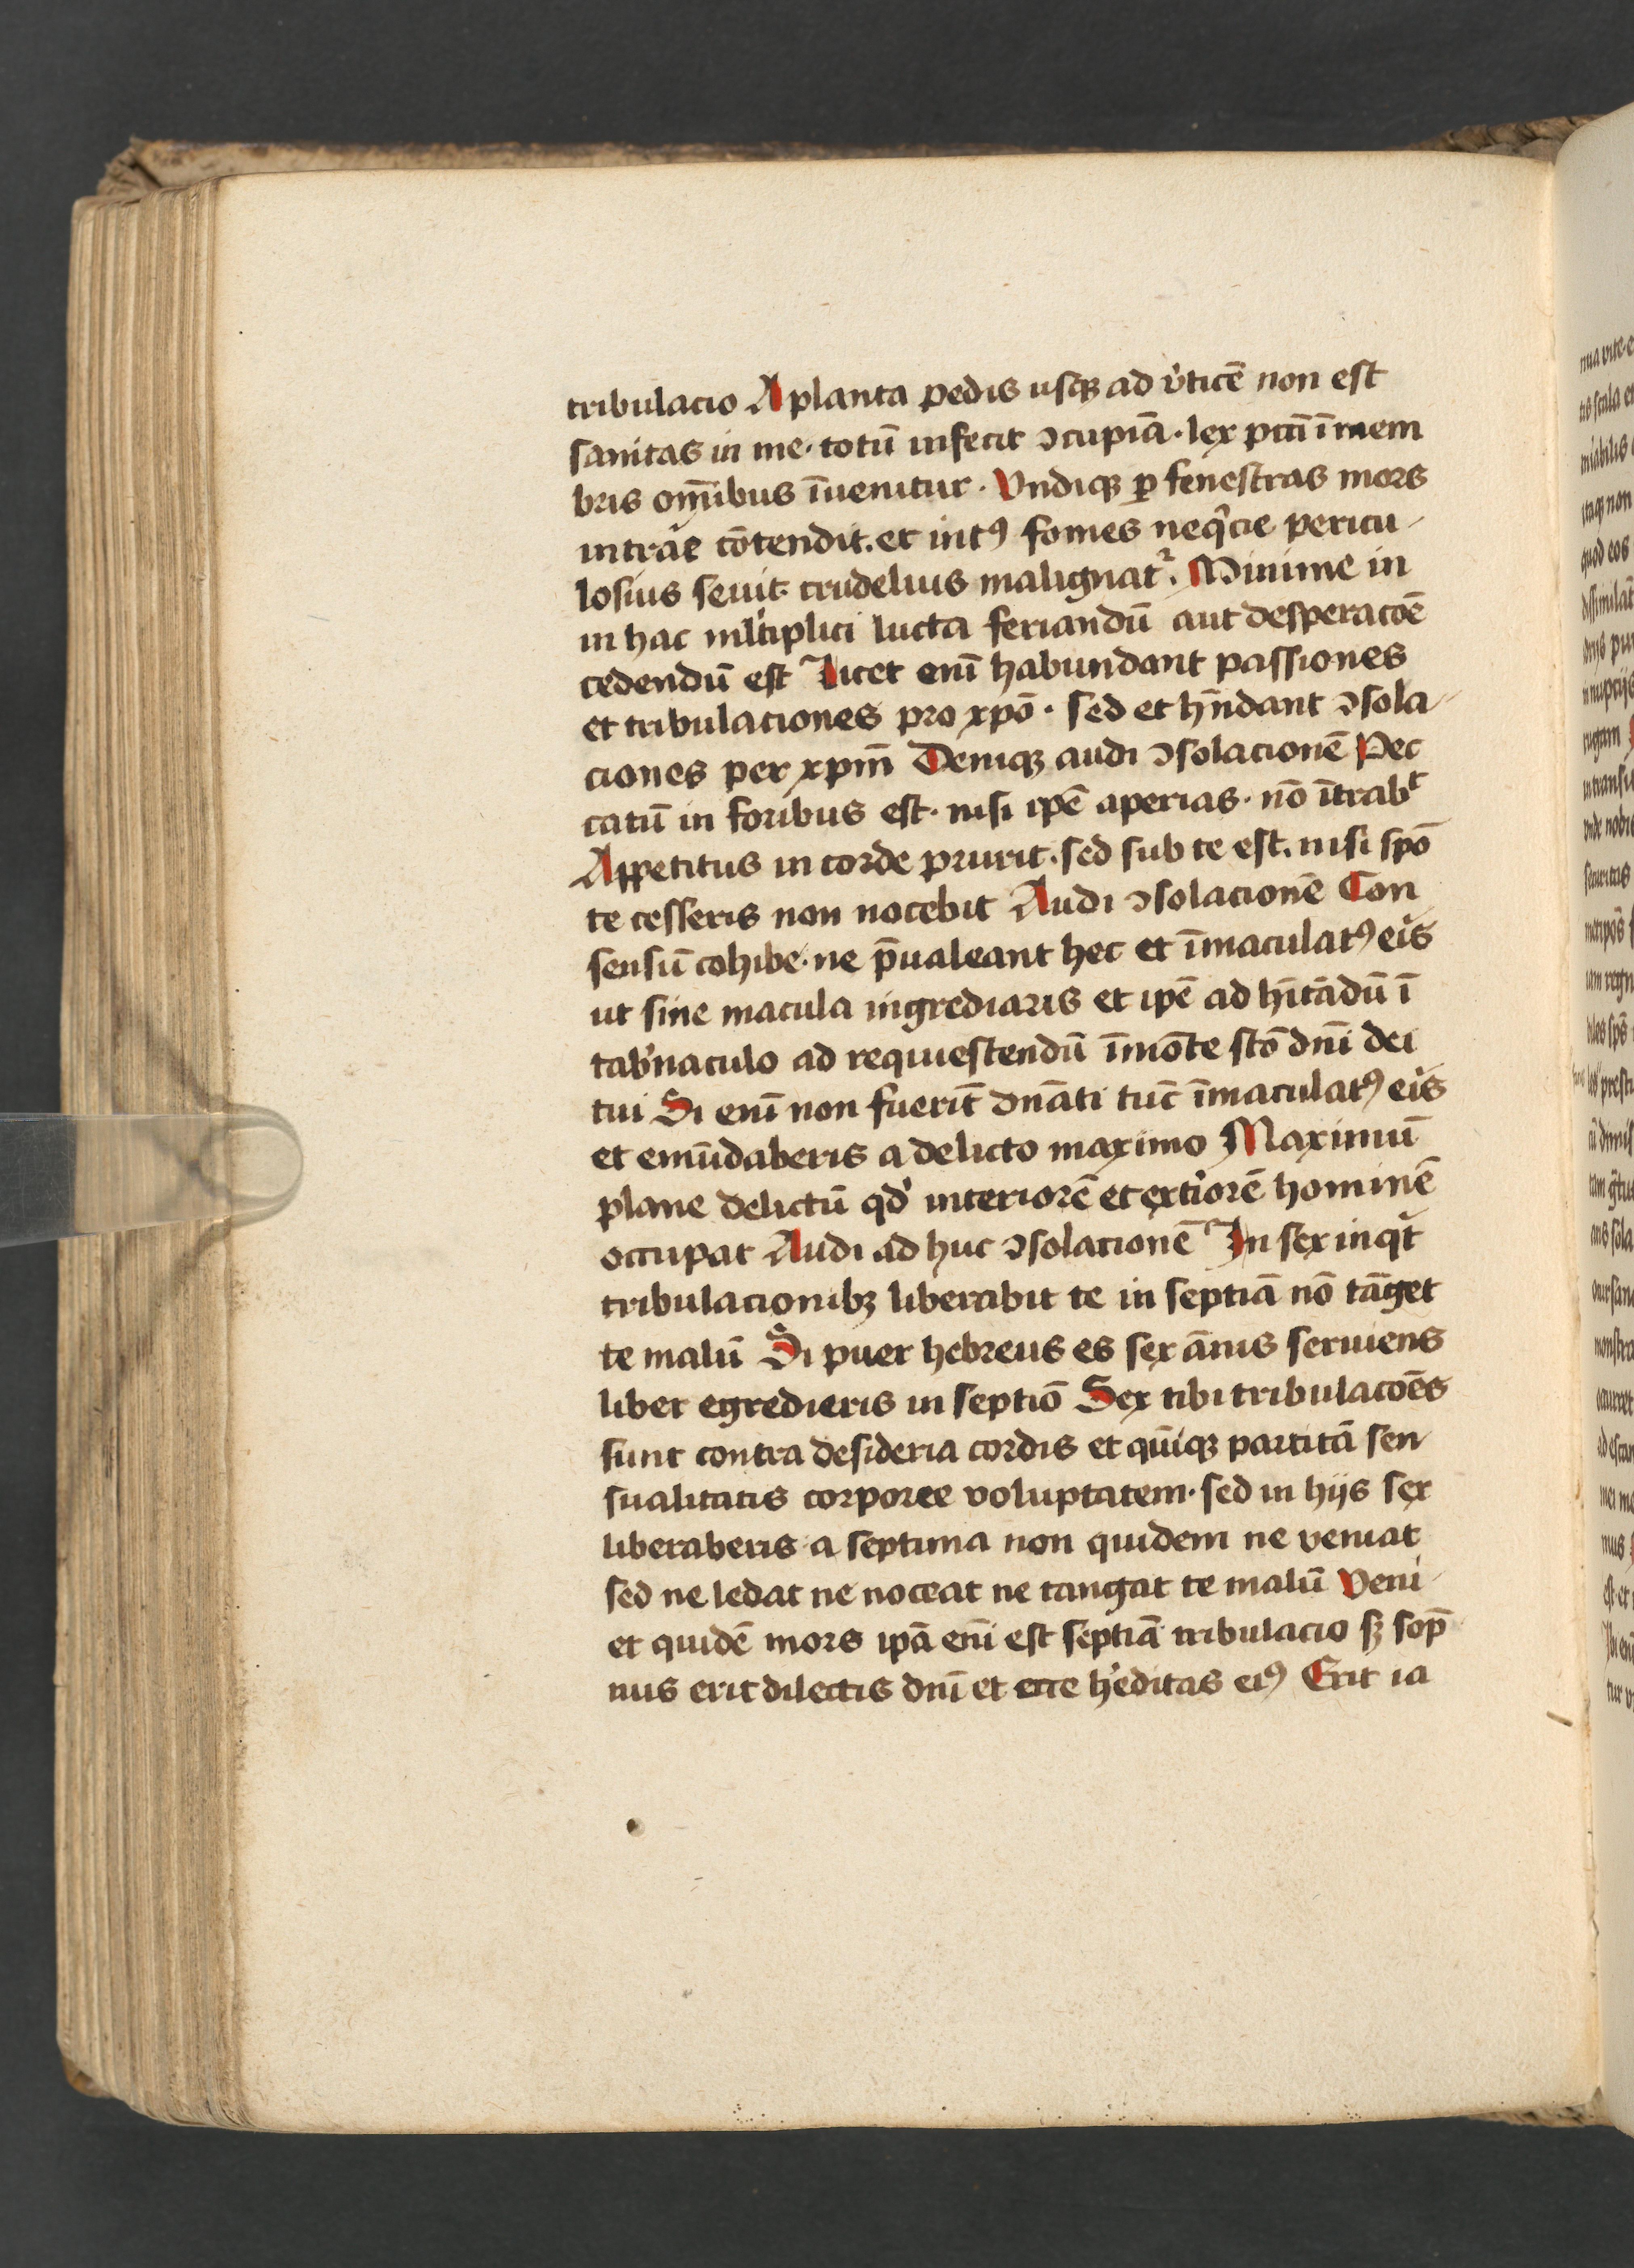 tribulacio A planta pedis usqꝫ ad v̓ticē non est
sanitas in me· totū infecit ɔcupiā· lex pctī ī mem
bris om̄ibus īuenitur· Vndiqꝫ ꝑ fenestras mors
intrāe cōtendit. et intꝰ fomes neq̓cie pericu-
losius seuit· crudelius malignatᷣ. Minime in
in hac ml̓tiplici lucta feriandū aut desperacōē
cedendū est Licet enī habundant passiones
et tribulaciones pro xpō· sed et hn̄dant ɔsola-
ciones per xpm̄ Deniqꝫ audi ɔsolacionē Pec
catū in foribus est· nisi ipē aperias· nō ītrabᵗ
Appetitus in corde prurit· sed sub te est. nisi spō
te cesseris non nocebit Audi ɔsolacionē Con
sensū cohibe· ne p̄ualeant hec et īmaculatꝰ eis
ut sine macula ingrediaris et ipē ad hītādū ī
tab̓naculo ad requiescendū ī mōte stō dnī dei
tui Si enī non fuerīt dnāti tūc īmaculatꝰ eis
et emūdaberis a delicto maximo Maximū
plane delictū qd̓ interiorē et ext̓iorē hominē
occupat Audi ad huc ɔsolacionē In sex inqt̄
tribulacionibꝫ liberabit te in septiā nō tāget
te malū Si puer hebreus es sex ānis seruiens
liber egredieris in septiō Sex tibi tribulacōēs
sunt contra desideria cordis et qūiqꝫ partitā sen-
sualitatis corporee voluptatem· sed in hijs sex
liberaberis a septima non quidem ne veniat
sed ne ledat ne noceat ne tangat te malū Veni-
et quidē mors ipā enī est septiā tribulacio sꝫ sop̄
nus erit dilectis dnī et ecce h̓editas eiꝰ Erit ia